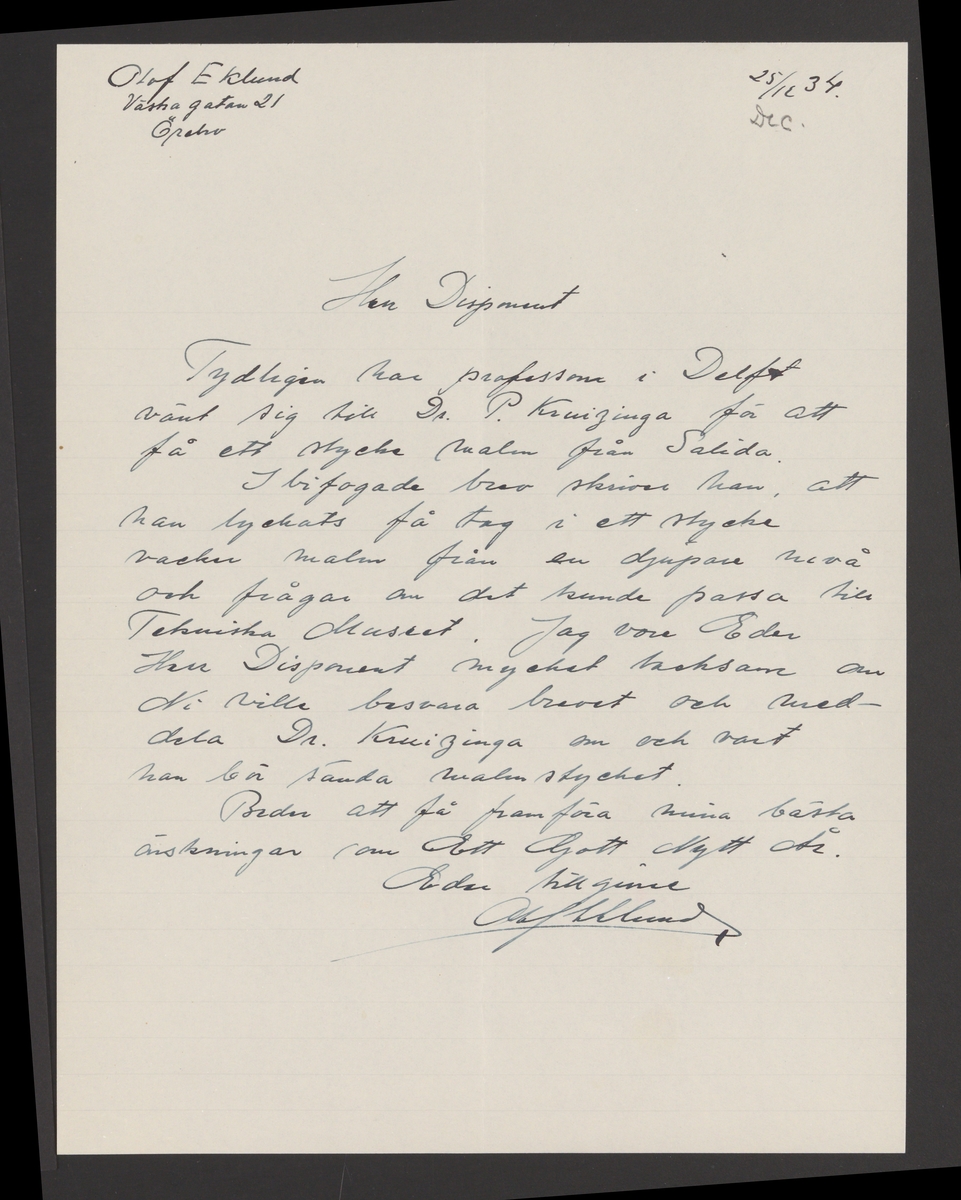 Olof Eklund
Västra gatan 21
Örebro
25/12 34.
Dec.
Herr Disponent
Tydligen har professorn i Delft
vänt sig till Dr. P. Kruizinga för att
få ett stycke malm från Salida.
I bifogade brev skriver han, att
han lyckats få tag i ett stycke
vacker malm från en djupare nivå
och frågar om det kunde passa till
Tekniska Museet. Jag vore Eder
Herr Disponent mycket tacksam om
Ni ville besvara brevet och med-
dela Dr. Kruizinga om och vart
han bör sända malmstycket.
Beder att få framföra mina bästa
önskningar om Ett Gott Nytt År.
Eder tillgivne
Olof Eklund